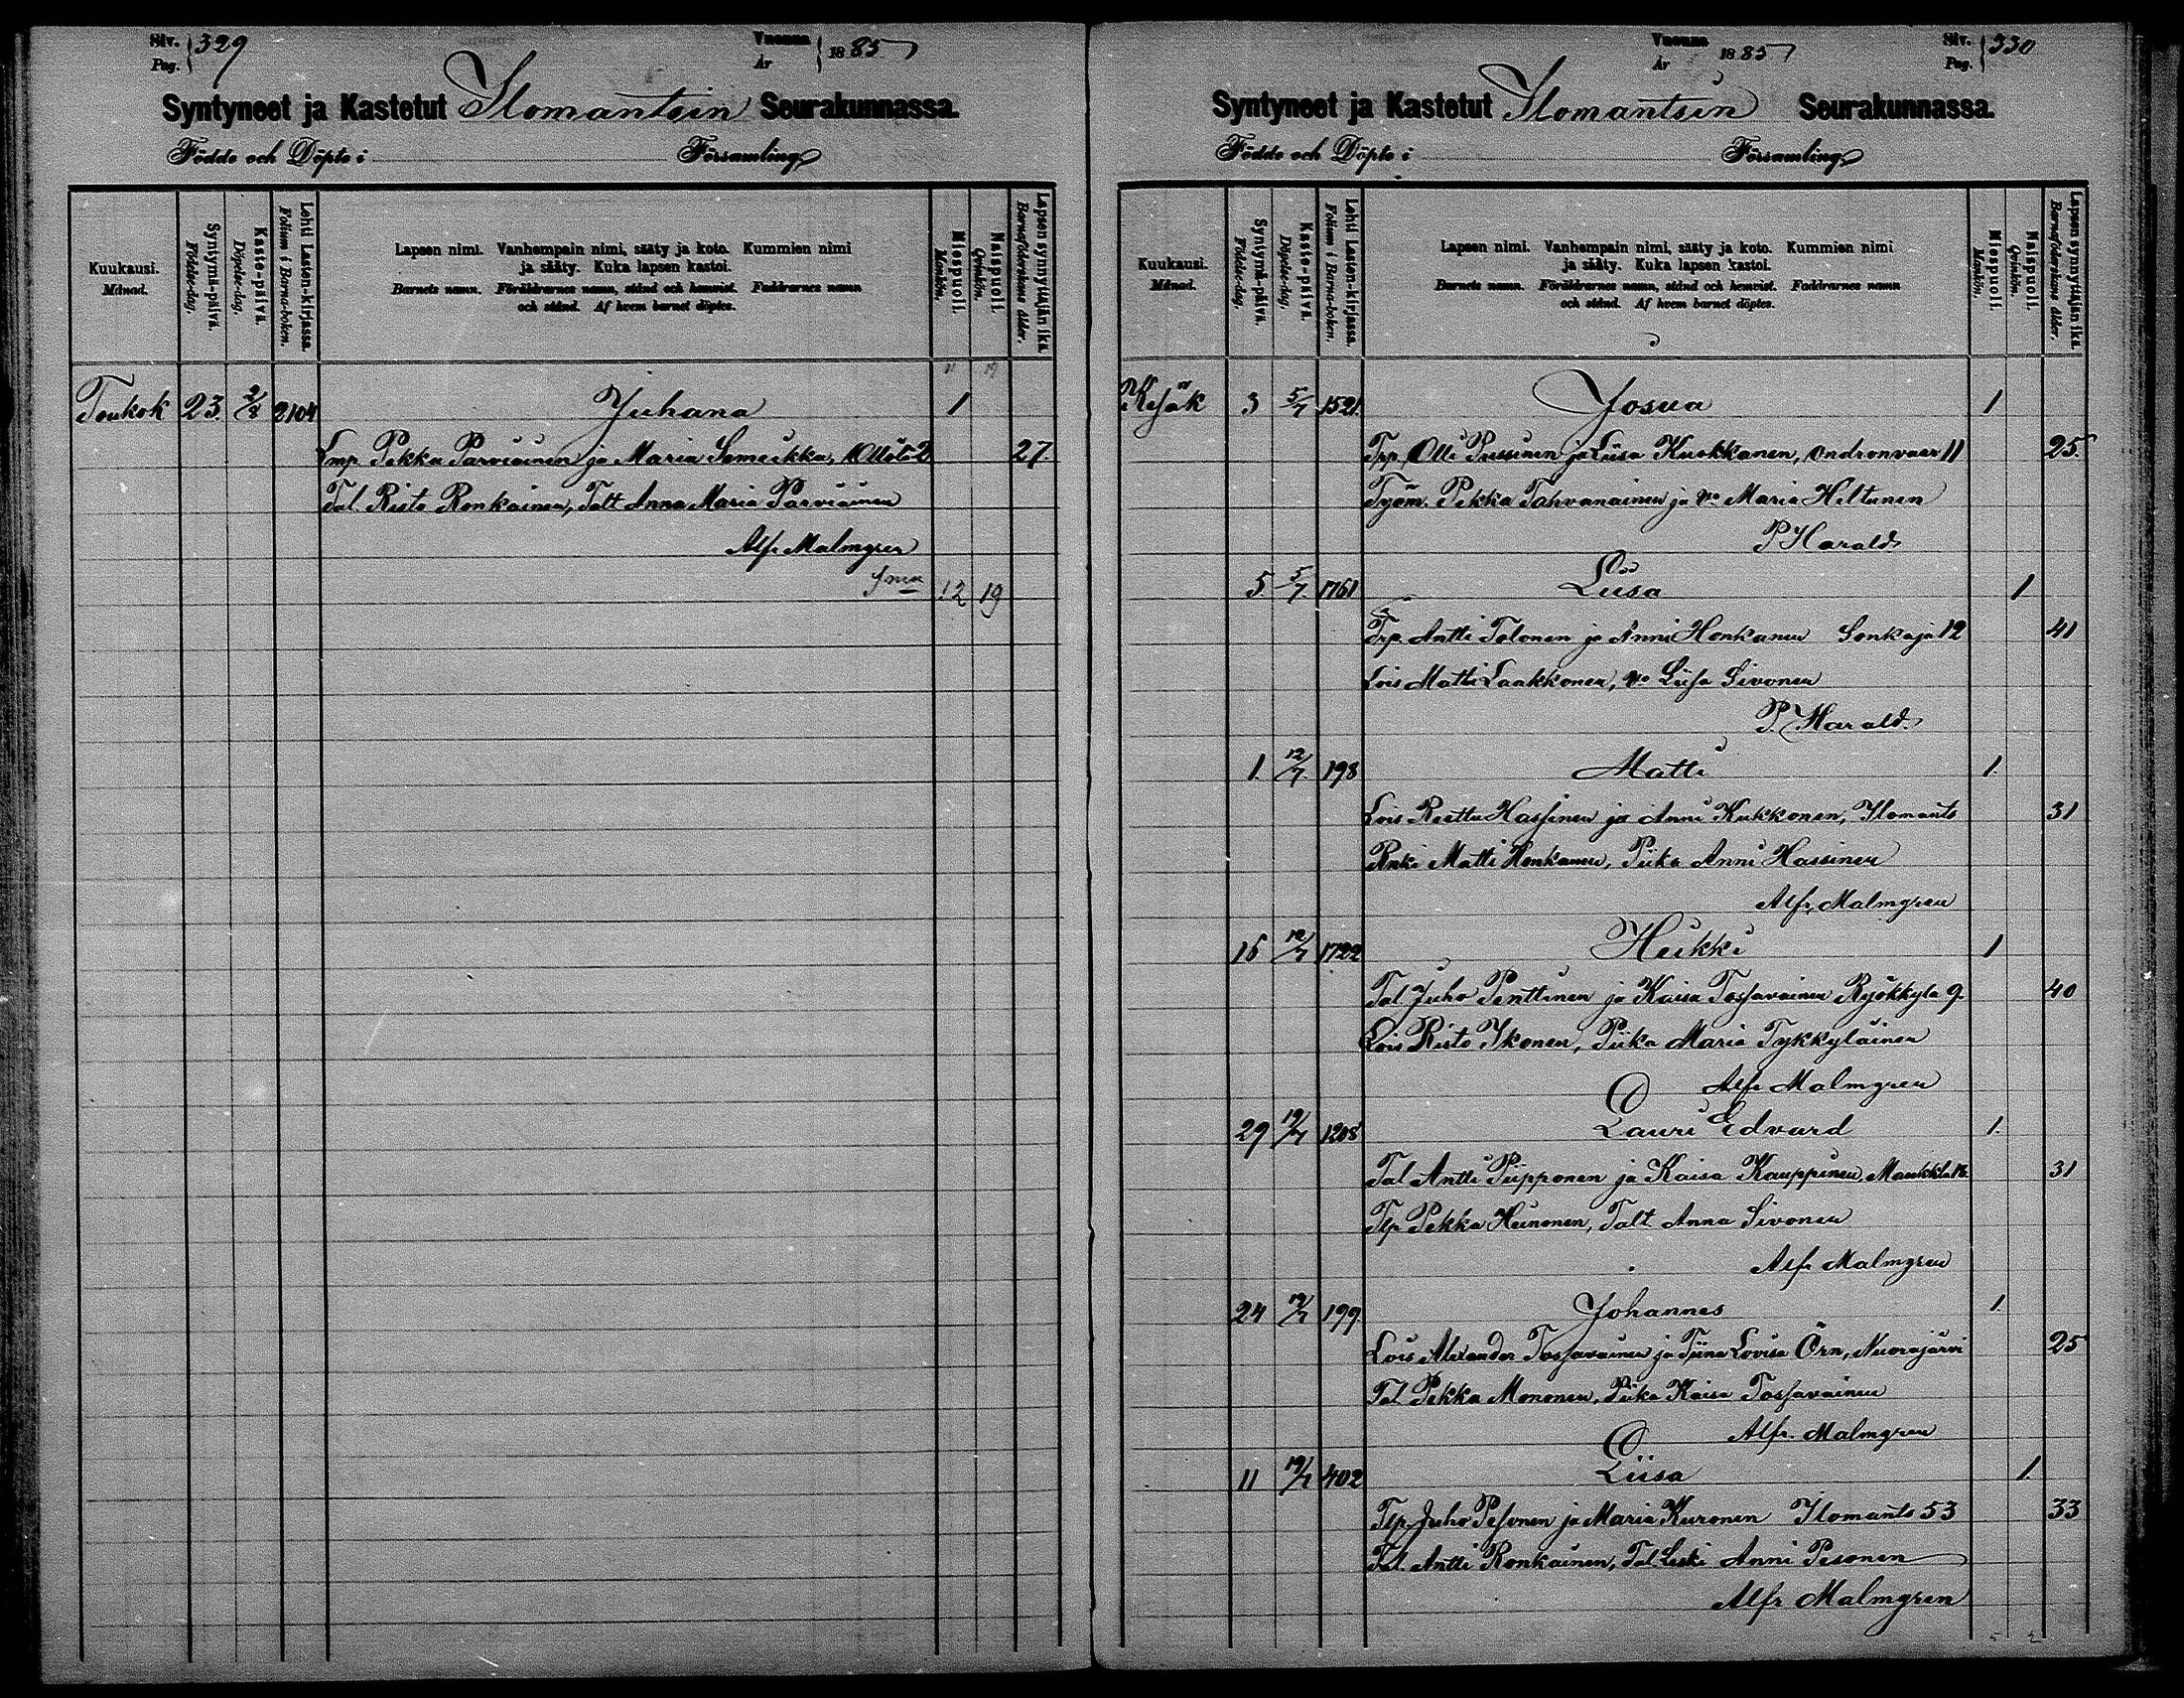 Siv. Pag. 329
Vuonna År 1885
Syntyneet ja Kastetut Ilomantsin Seurakunnassa.
Födde och Döpte i Församling
Kuukausi. Månad.
Syntymä-päivä. Födelse-dag.
Kaste-päivä. Döpelse-dag.
Lehti Lasten-kirjassa. Folium i Barna-boken.
Lapsen nimi. Vanhempain nimi, sääty ja koto. Kummien nimi
ja sääty. Kuka lapsen kastoi.
Barnets namn. Föräldrarnes namn, stånd och hemvist. Faddrarnes namn
och stånd. Af hvem barnet döptes.
Miespuoli. Mankön.
Naispuoli. Qvinkön.
Lapsen synnyttäjän ikä. Barnaföderskans ålder.
Toukok 23. 2/8 2104 Juhana 1
Lmp. Pekka Parviainen ja Maria Someikka, 2 27
Tal. Risto Ronkainen, Talt Anna Maria Parviainen
Alfr Malmgren
Sma 12 19
Vuonna År 1885
Siv. Pag. 330
Syntyneet ja Kastetut Ilomantsin Seurakunnassa.
Födde och Döpte i Församling
Kuukausi. Månad.
Syntymä-päivä. Födelse-dag.
Kaste-päivä. Döpelse-dag.
Lehti Lasten-kirjassa. Folium i Barna-boken.
Lapsen nimi. Vanhempain nimi, sääty ja koto. Kummien nimi
ja sääty. Kuka lapsen kastoi.
Barnets namn. Föräldrarnes namn, stånd och hemvist. Faddrarnes namn
och stånd. Af hvem barnet döptes.
Miespuoli. Mankön.
Naispuoli. Qvinkön.
Lapsen synnyttäjän ikä. Barnaföderskans ålder.
Kesäk 3 5/7 1521. Josua 1
Trp. Olli Pussinen ja Liisa Kuokkanen, Ondronvaar 11 25
Työm. Pekka Tahvanainen ja Vo Maria Hiltunen
P Harald
5 5/7. 1761 Liisa 1
Trp. Antti Tolonen ja Anni Honkanen Sonkaja 12 41
Lois Matti Laakkonen, Vo Liisa Sivonen
P. Harald.
1. 12/7. 198 Matti 1.
Lois Reettu Hassinen ja Anni Kukkonen, Ilomants 31
Renki Matti Honkanen, Piika Anni Hassinen
Alfr. Malmgren
16 12/7 1722 Heikki 1
Tal Juho Penttinen ja Kaisa Tossavainen Ryökkyla 9. 40
Lois Risto Ikonen, Piika Maria Tykkyläinen
Alfr Malmgren
29 19/7 1208 Lauri Edvard 1.
Tal Antti Piipponen ja Kaisa Kauppinen, 31
Tlp Pekka Heinonen, Talt Anna Sivonen
Alfr Malmgren
24 19/7 199. Johannes 1.
Lois Alexander Tossavainen ja Tiina Lovisa Örn, Nuorajärvi 25
Tal Pekka Mononen, Piika Kaisa Tossavainen
Alfr. Malmgren
11 19/7 402 Liisa 1
Tlp. Juho Pesonen ja Maria Kuronen Ilomants 53 33
Tal. Antti Ronkainen, Tal. Leski Anni Pesonen
Alfr Malmgren
5 2